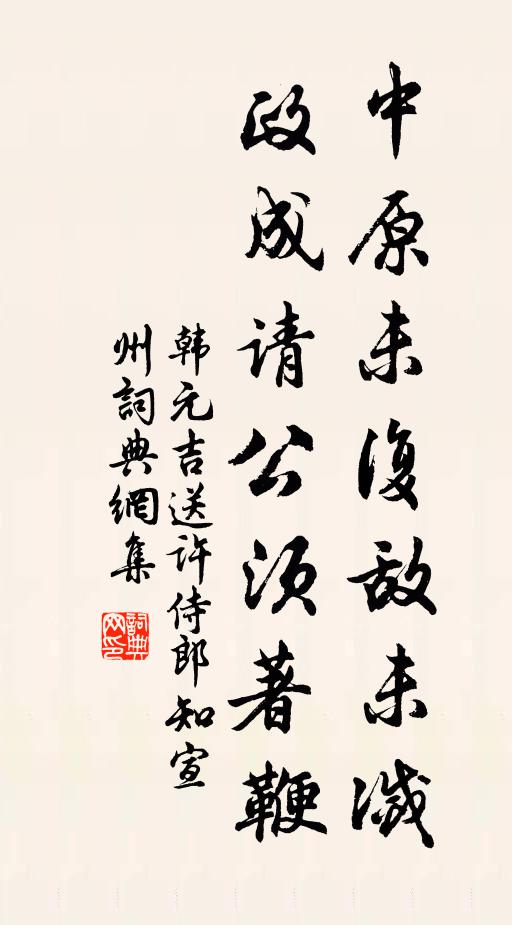 中原未復敌未滅
政成请公须著鞭
韩元吉送许侍郎知宣
州詞典網集
詞典
网印